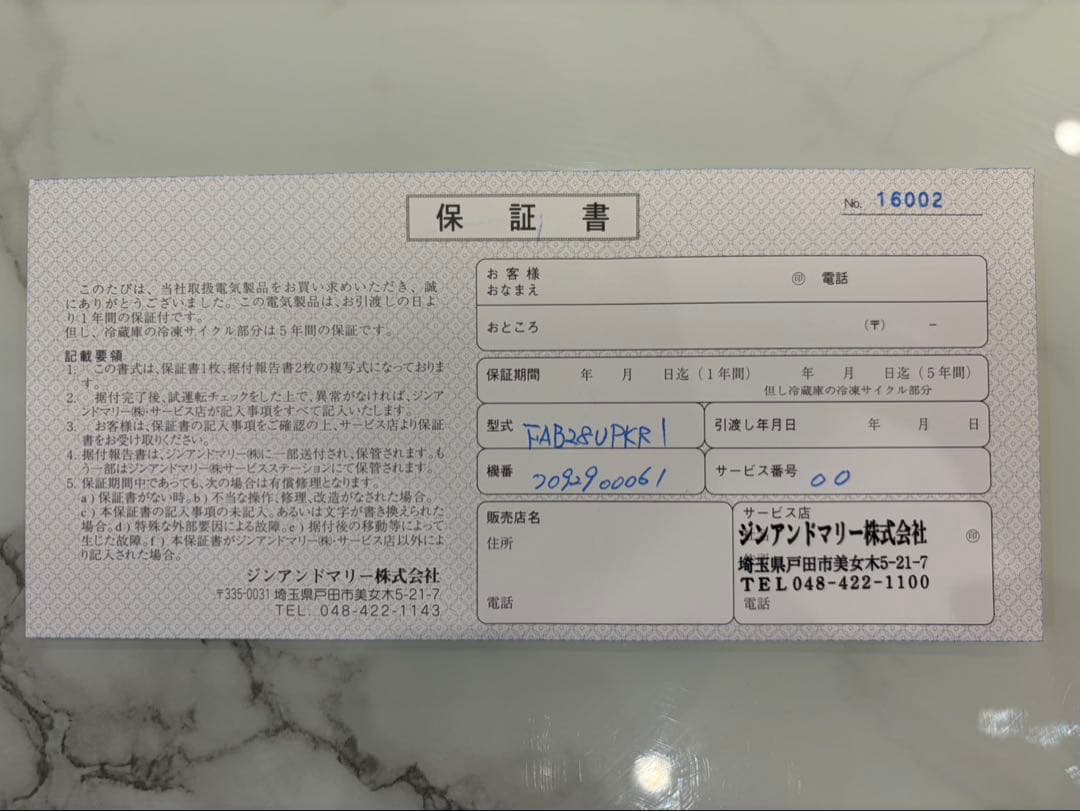 保証書
No. 16002
このたびは、当社取扱電気製品をお買い求めいただき、誠
にありがとうございました。この電気製品は、お引渡しの日よ
り1年間の保証付です。
但し、冷蔵庫の冷凍サイクル部分は5年間の保証です。
記載要領
1. この書式は、保証書1枚、据付報告書2枚の複写式になっておりま
す。
2. 据付完了後、試運転チェックをした上で、異常がなければ、ジンア
ンドマリー㈱・サービス店が記入事項をすべて記入いたします。
3. お客様は、保証書の記入事項をご確認の上、サービス店より保証
書をお受け取りください。
4. 据付報告書は、ジンアンドマリー㈱に一部送付され、保管されます。も
う一部はジンアンドマリー㈱サービスステーションにて保管されます。
5. 保証期間中であっても、次の場合は有償修理となります。
a)保証書がない時。b)不当な操作、修理、改造がなされた場合。
c)本保証書の記入事項の未記入。あるいは文字が書き換えられた
場合。d)特殊な外部要因による故障。e)据付後の移動等によって
生じた故障。f)本保証書がジンアンドマリー㈱・サービス店以外によ
り記入された場合。
ジンアンドマリー株式会社
〒335-0031 埼玉県戸田市美女木5-21-7
TEL. 048-422-1143
お客様
おなまえ ㊞ 電話
おところ (〒) -
保証期間 年 月 日迄(1年間) 年 月 日迄(5年間)
但し冷蔵庫の冷凍サイクル部分
型式 FAB28UPKR1
引渡し年月日 年 月 日
機番 7092900061
サービス番号 00
販売店名
住所
電話
サービス店
ジンアンドマリー株式会社 ㊞
埼玉県戸田市美女木5-21-7
TEL 048-422-1100
電話